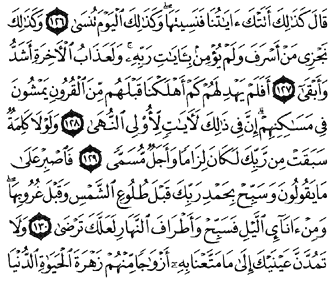 قَالَ كَذَٰلِكَ أَتَتْكَ ءَايَٰتُنَا فَنَسِيتَهَا ۖ وَكَذَٰلِكَ ٱلْيَوْمَ تُنسَىٰ ١٢٦ وَكَذَٰلِكَ
نَجْزِى مَنْ أَسْرَفَ وَلَمْ يُؤْمِنۢ بِـَٔايَٰتِ رَبِّهِۦ ۚ وَلَعَذَابُ ٱلْءَاخِرَةِ أَشَدُّ
وَأَبْقَىٰٓ ١٢٧ أَفَلَمْ يَهْدِ لَهُمْ كَمْ أَهْلَكْنَا قَبْلَهُم مِّنَ ٱلْقُرُونِ يَمْشُونَ
فِى مَسَٰكِنِهِمْ ۗ إِنَّ فِى ذَٰلِكَ لَءَايَٰتٍ لِّأُو۟لِى ٱلنُّهَىٰ ١٢٨ وَلَوْلَا كَلِمَةٌ
سَبَقَتْ مِن رَّبِّكَ لَكَانَ لِزَامًا وَأَجَلٌ مُّسَمًّى ١٢٩ فَٱصْبِرْ عَلَىٰ
مَا يَقُولُونَ وَسَبِّحْ بِحَمْدِ رَبِّكَ قَبْلَ طُلُوعِ ٱلشَّمْسِ وَقَبْلَ غُرُوبِهَا ۖ
وَمِنْ ءَانَآئِ ٱلَّيْلِ فَسَبِّحْ وَأَطْرَافَ ٱلنَّهَارِ لَعَلَّكَ تَرْضَىٰ ١٣٠ وَلَا
تَمُدَّنَّ عَيْنَيْكَ إِلَىٰ مَا مَتَّعْنَا بِهِۦٓ أَزْوَٰجًا مِّنْهُمْ زَهْرَةَ ٱلْحَيَوٰةِ ٱلدُّنْيَا